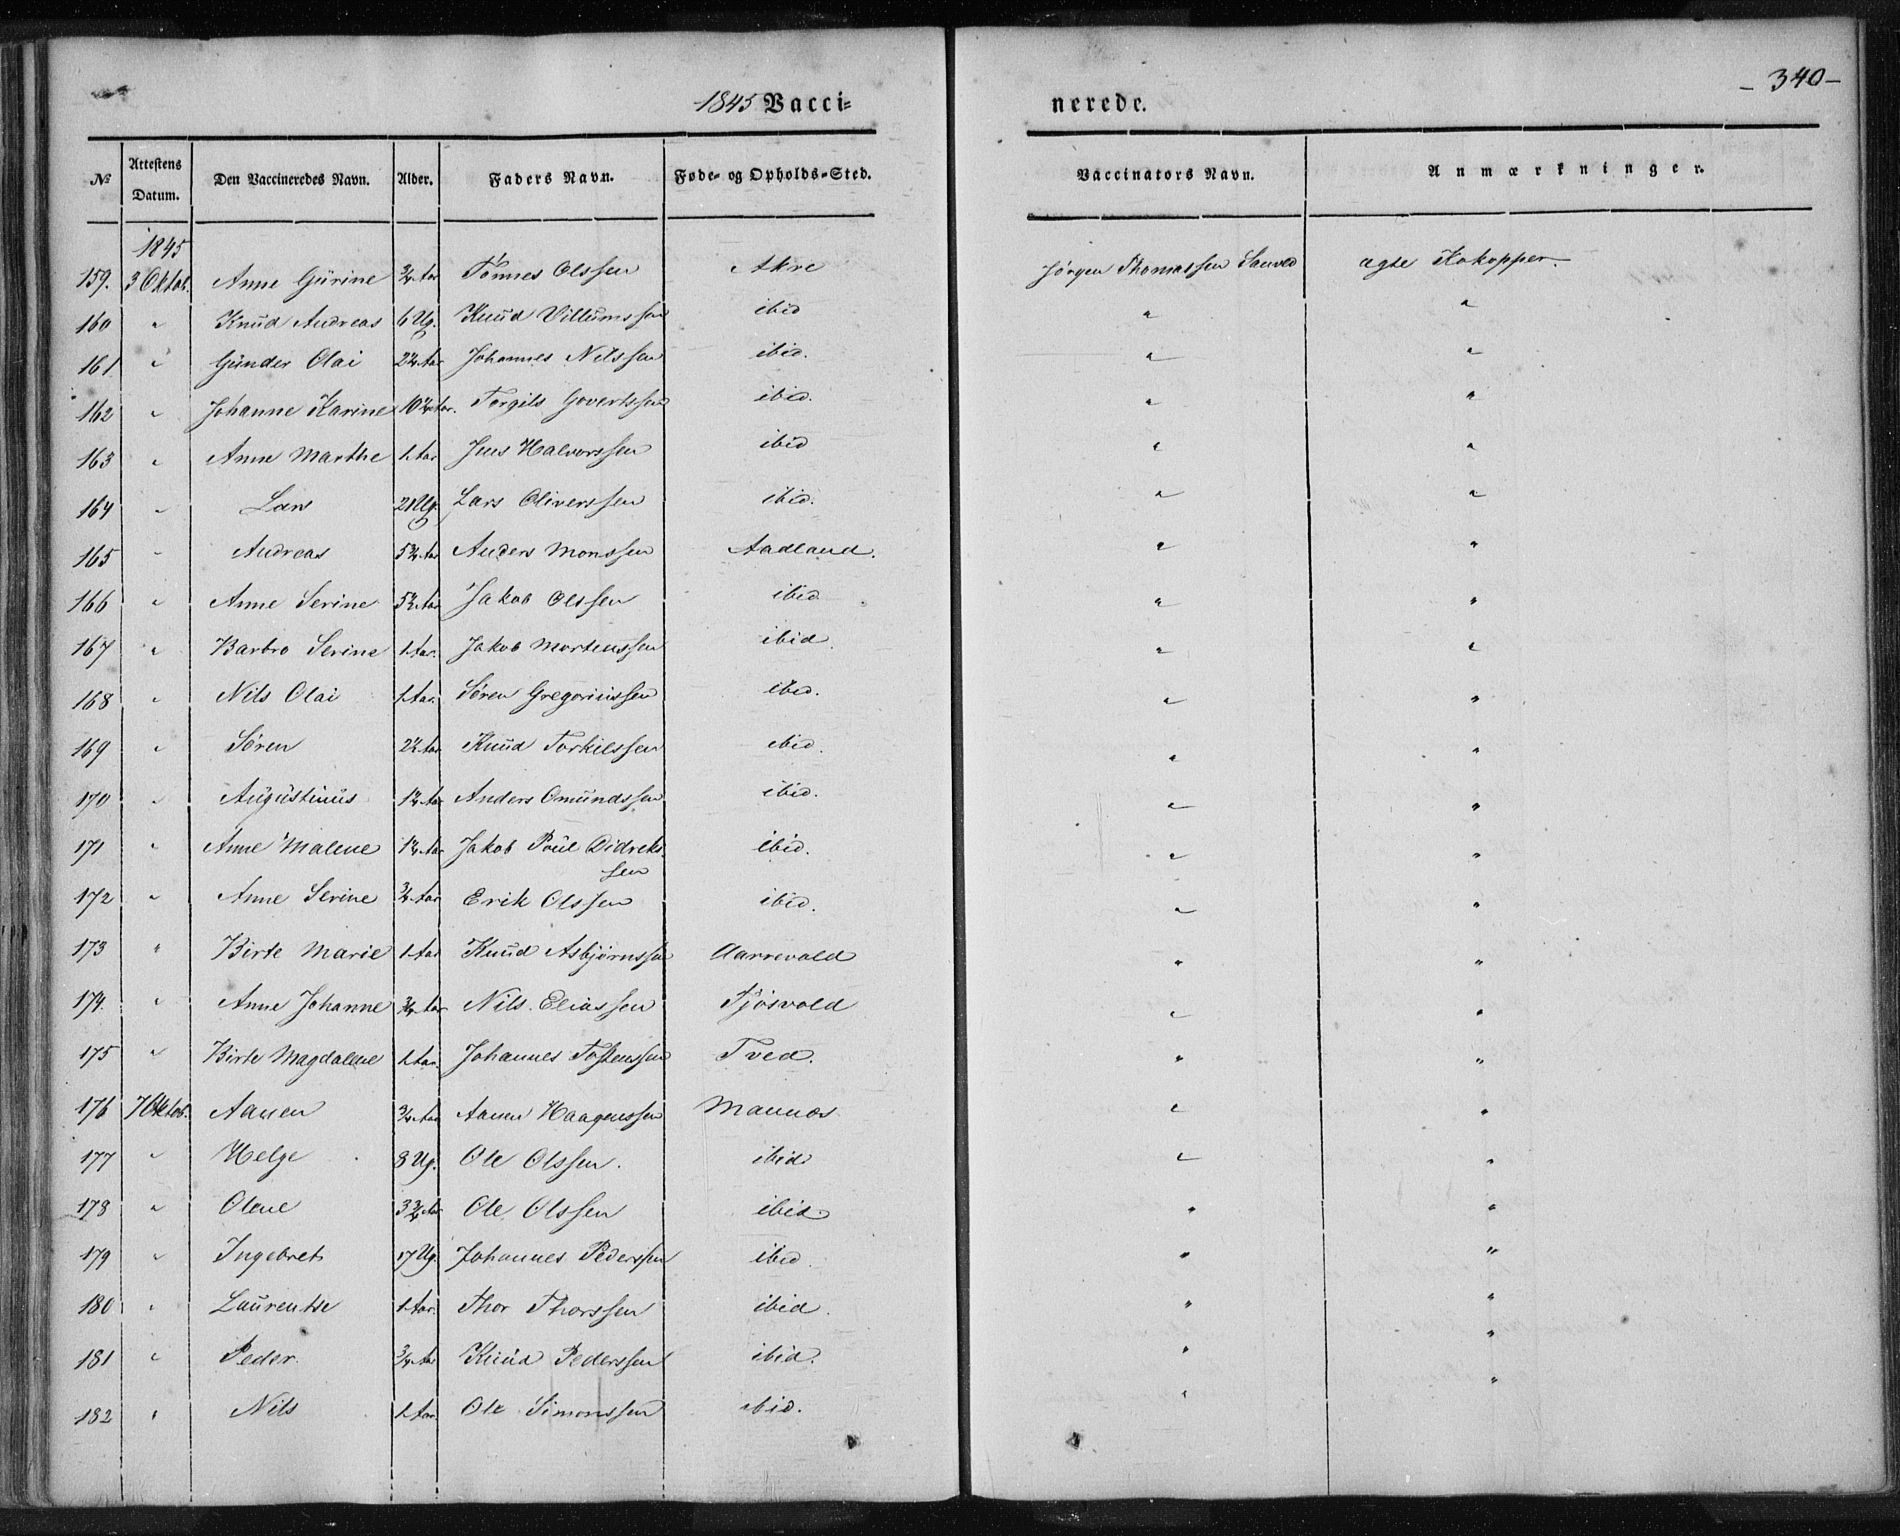 1845 Vacci=
nerede.
- 340 -
№ Attestens Datum. Den Vaccineredes Navn. Alder. Faders Navn. Føde- og Opholds-Sted. Vaccinators Navn. Anmærkninger.
1845
159. 3 Oktob. Anne Gürine 3/4 Aar Tönnes Olssen Akre Jørgen Thomassen Sanved ægte Kokopper.
160 " Knud Andreas 6 Ug. Knud Villumssen ibid " "
161 " Günder Olai 2 1/4 Aar Johannes Nilssen ibid. " "
162 " Johanne Karine 10 1/4 Aar. Torgils Govertssen ibid. " "
163 " Anne Marthe 1 Aar Jens Halvorssen ibid " "
164 " Lars 21 Ug. Lars Oliverssen ibid. " "
165 " Andreas 5 3/4 Aar Anders Monssen Aadland. " "
166 " Anne Serine 5 1/2 Aar Jakob Olssen ibid " "
167 " Barbro Serine 1 Aar. Jakob Mortenssen ibid. " "
168 " Nils Olai 1 Aar. Søren Gregoriussen ibid. " "
169 " Søren 2 1/2 Aar Knud Torkilssen ibid. " "
170 " Augustinus 1 1/4 Aar Anders Omundssen ibid. " "
171 " Anne Malene 1 1/4 Aar Jakob Poul Didreks
sen ibid. " "
172 " Anne Serine 3/4 Aar Erik Olssen ibid. " "
173 " Birte Marie 1 Aar Knud Asbjørnssen Aarevald " "
174. " Anne Johanne 3/4 Aar Nils Eliassen Tjøsvold " "
175 " Birte Magdalene 1 Aar. Johannes Tostenssen Tved. " "
176 7 Oktob. Aanen 3/4 Aar Aanen Haagenssen Mannes " "
177 " Helge 8 Ug. Ole Olssen. ibid " "
178 " Olene 3 3/4 Aar Ole Olssen ibid " "
179 " Ingebret 17 Ug. Johannes Pederssen ibid " "
180 " Laurentse 1 Aar. Thor Thorssen ibid. " "
181 " Peder 3/4 Aar Knud Pederssen ibid. " "
182 " Nils 1 Aar. Ole Simonssen ibid. " "